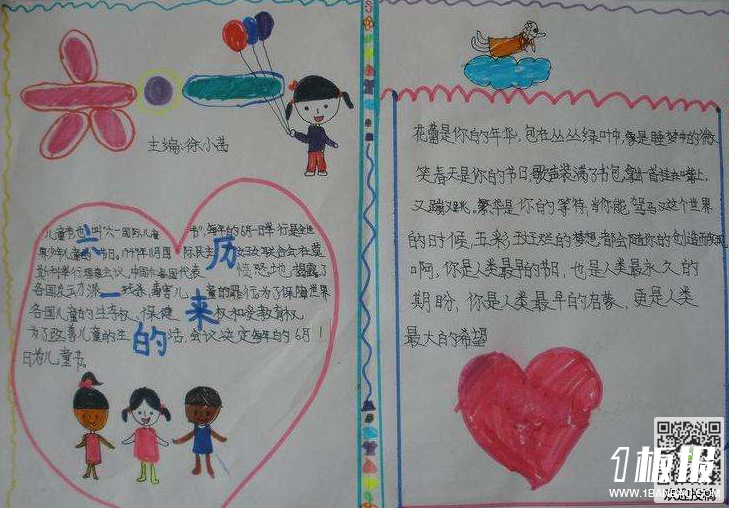 六·一
主编:徐小茜
儿童节也叫"六一国际儿童节",每年的6月1日举行是全世
界少年儿童的节日。1949年11月国际民主妇女联合会在莫
斯科举行理事会议,中国和各国代表愤怒地揭露了
各国反动派残杀、毒害儿童的罪行为了保障世界
各国儿童的生存权、保健权和受教育权,
为了改善儿童的生活,会议决定每年的6月1
日为儿童节。
六一的历来
花蕾是你的年华,包在丛丛绿叶中,像是睡梦中的微
笑春天是你的节日,歌声装满了书包,拿出一首挂在嘴上,
又蹦又跳。繁华是你的等待,当你能驾驭这个世界
的时候,五彩斑斓的梦想都会随你的创造而实现
啊,你是人类最早的节日,也是人类最永久的
期盼,你是人类最早的启蒙,更是人类
最大的希望
1板报
WWW.1BANBAO.COM
欢迎投稿